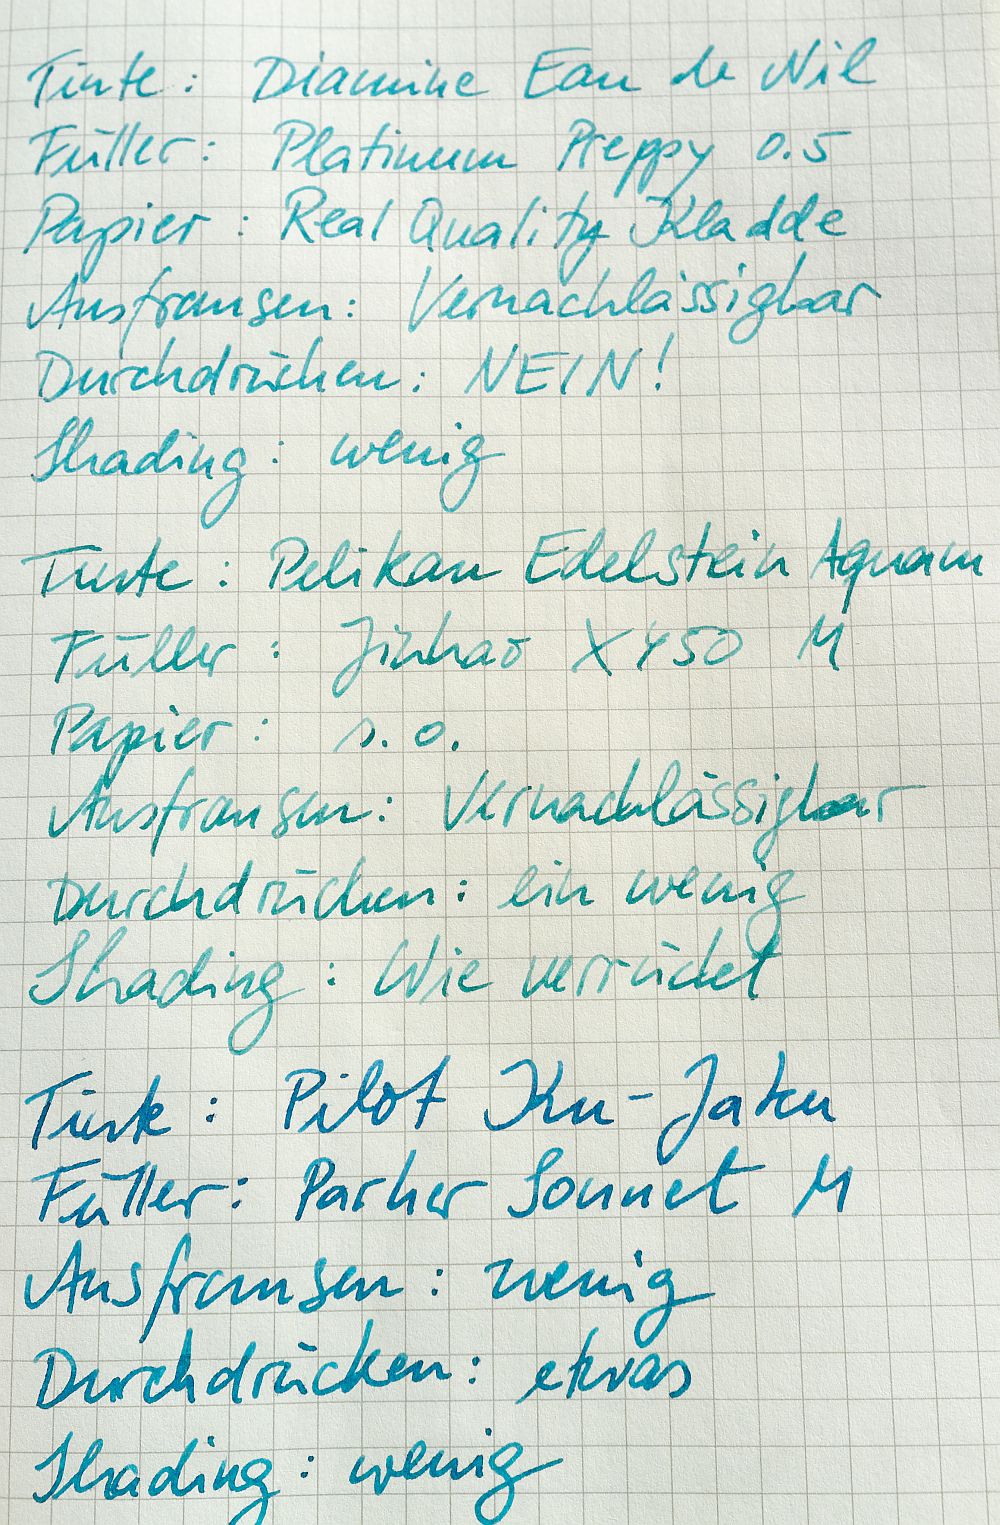 Tinte: Diamine Eau de Nil
Füller: Platinum Preppy 0.5
Papier: Real Quality Kladde
Ausfransen: Vernachlässigbar
Durchdrücken: NEIN!
Shading: wenig
Tinte: Pelikan Edelstein Aquam
Füller: Jinhao X450 M
Papier: s.o.
Ausfransen: Vernachlässigbar
Durchdrücken: ein wenig
Shading: Wie verrückt
Tinte: Pilot Ku-Jaku
Füller: Parker Sonnet M
Ausfransen: wenig
Durchdrücken: etwas
Shading: wenig